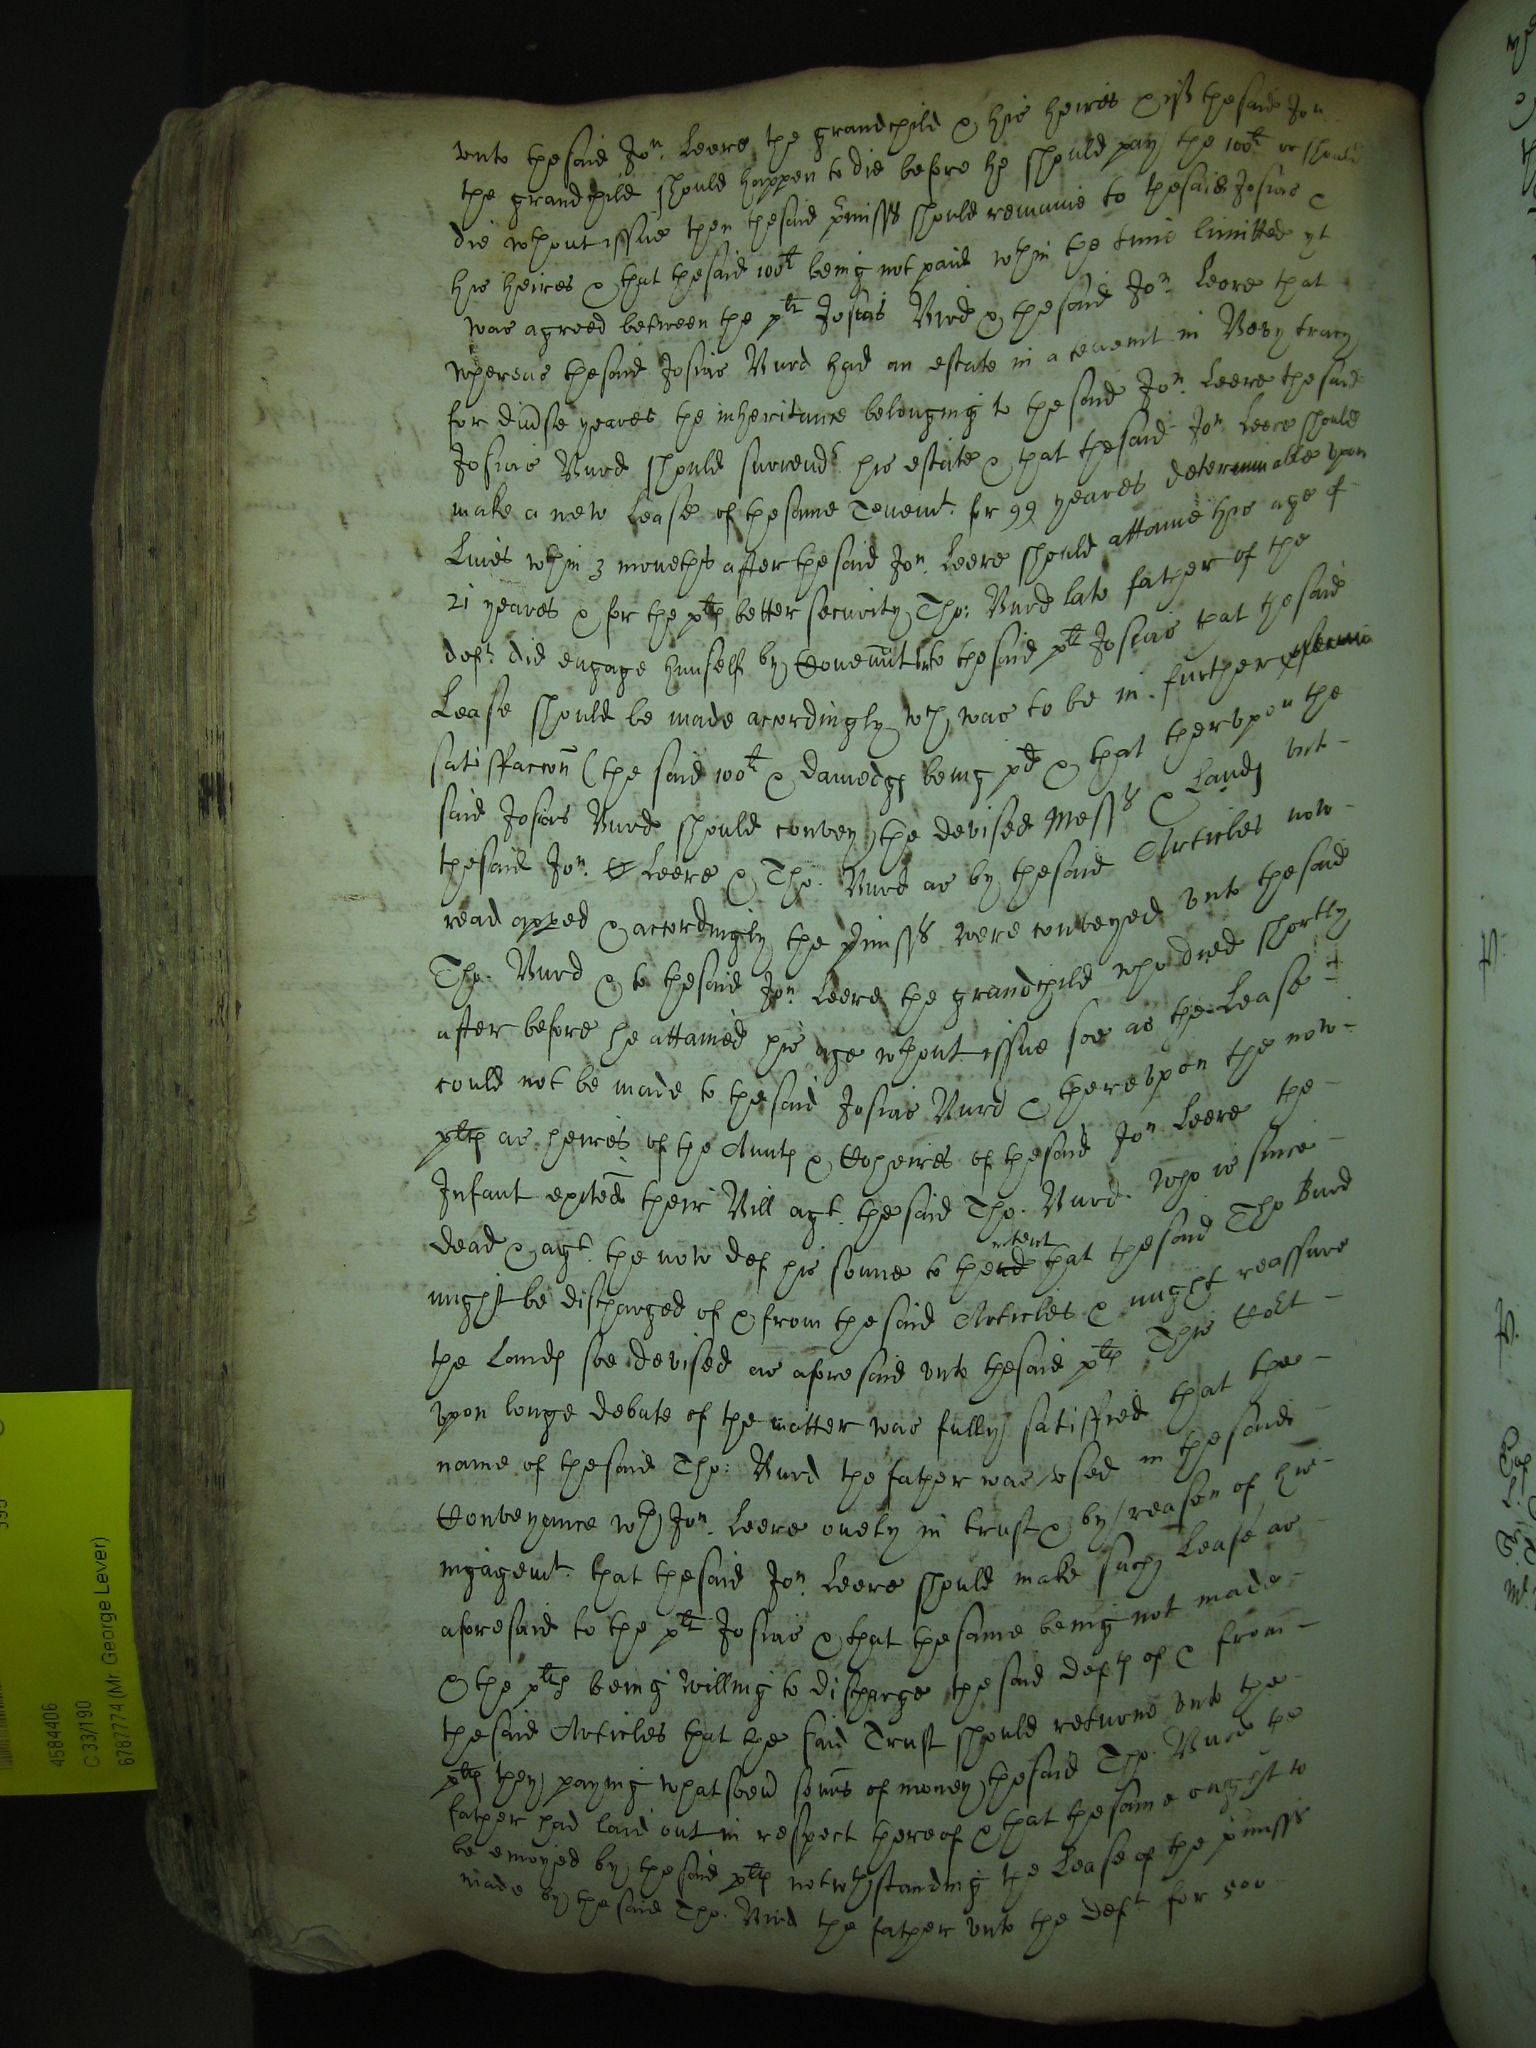 vnto the said Jon. Leere the grandchild & his heires & if the said Jon
the grandchild should happen to die before he should pay the 100li or should
die wthout issue then the said pmisss should remaine to the said Josias &
his heires & that the said 100li being not paid wthin the time limitted yt
was agreed between the plt Josias Burd & the said Jon. Leere that
whereas the said Josias Burd had an estate in a tenemt in Bovy tracy
for diuse yeares the inheritance belonging to the said Jon. Leere the said
Josias Burd should surrendr his estate & that the said Jon Leere should
make a new Lease of the same Tenemt. for 99 yeares determinable vpon
Liues wthin 3 moneths after the said Jon. Leere should attaine his age of
21 yeares & for the pltes better security Tho: Burd late father of the
deft. did engage himself by Covennt vnto the said plt Josias that the said
Lease should be made accordingly wch was to be in further
satisfaccon (the said 100li & damedges being pd & that therevpon the
said Josias Burd should convey the devised Messs & Landes vnt
the said Jon. Leere & Tho. Burd as by the said Articles now
read apped & accordingly the pmisss were conveyed vnto the said
Tho. Burd & to the said Jon. Leere the grandchild who died shortly
after before he attained his age wthout issue soe as the Lease
could not be made to the said Josias Burd & therevpon the now
pltes as heires of the Auntes & Coheires of the said Jon. Leere the
Infant exited their Bill agt. the said Tho. Burd. who is since
dead & agt. the now def his sonne to the intent that the said Tho Burd
might be discharged of & from the said Articles & might reassure
the Landes soe devised as aforesaid vnto the said pltes This Cort
vpon longe debate of the matter was fully satisfied that the
name of the said Tho: Burd the father was vsed in the said
Conveyance wth Jon. Leere onely in trust & by reason of his
ingagemt. that the said Jon. Leere should make such Lease as
aforesaid to the plt Josias & that the same being not made
& the pltes being willing to discharge the said deftes of & from
the said Articles that the said Trust should returne vnto the
pltes they paying whatsoeu soms of money the said Tho. Burd the
father had laid out in respect thereof & that the same ought to
be enioyed by the said pltes notwthstanding the Lease of the pmisss
made by the said Tho. Burd the father vnto the deft for 500
4584406
C 33/190
6787774 (Mr George Lever)